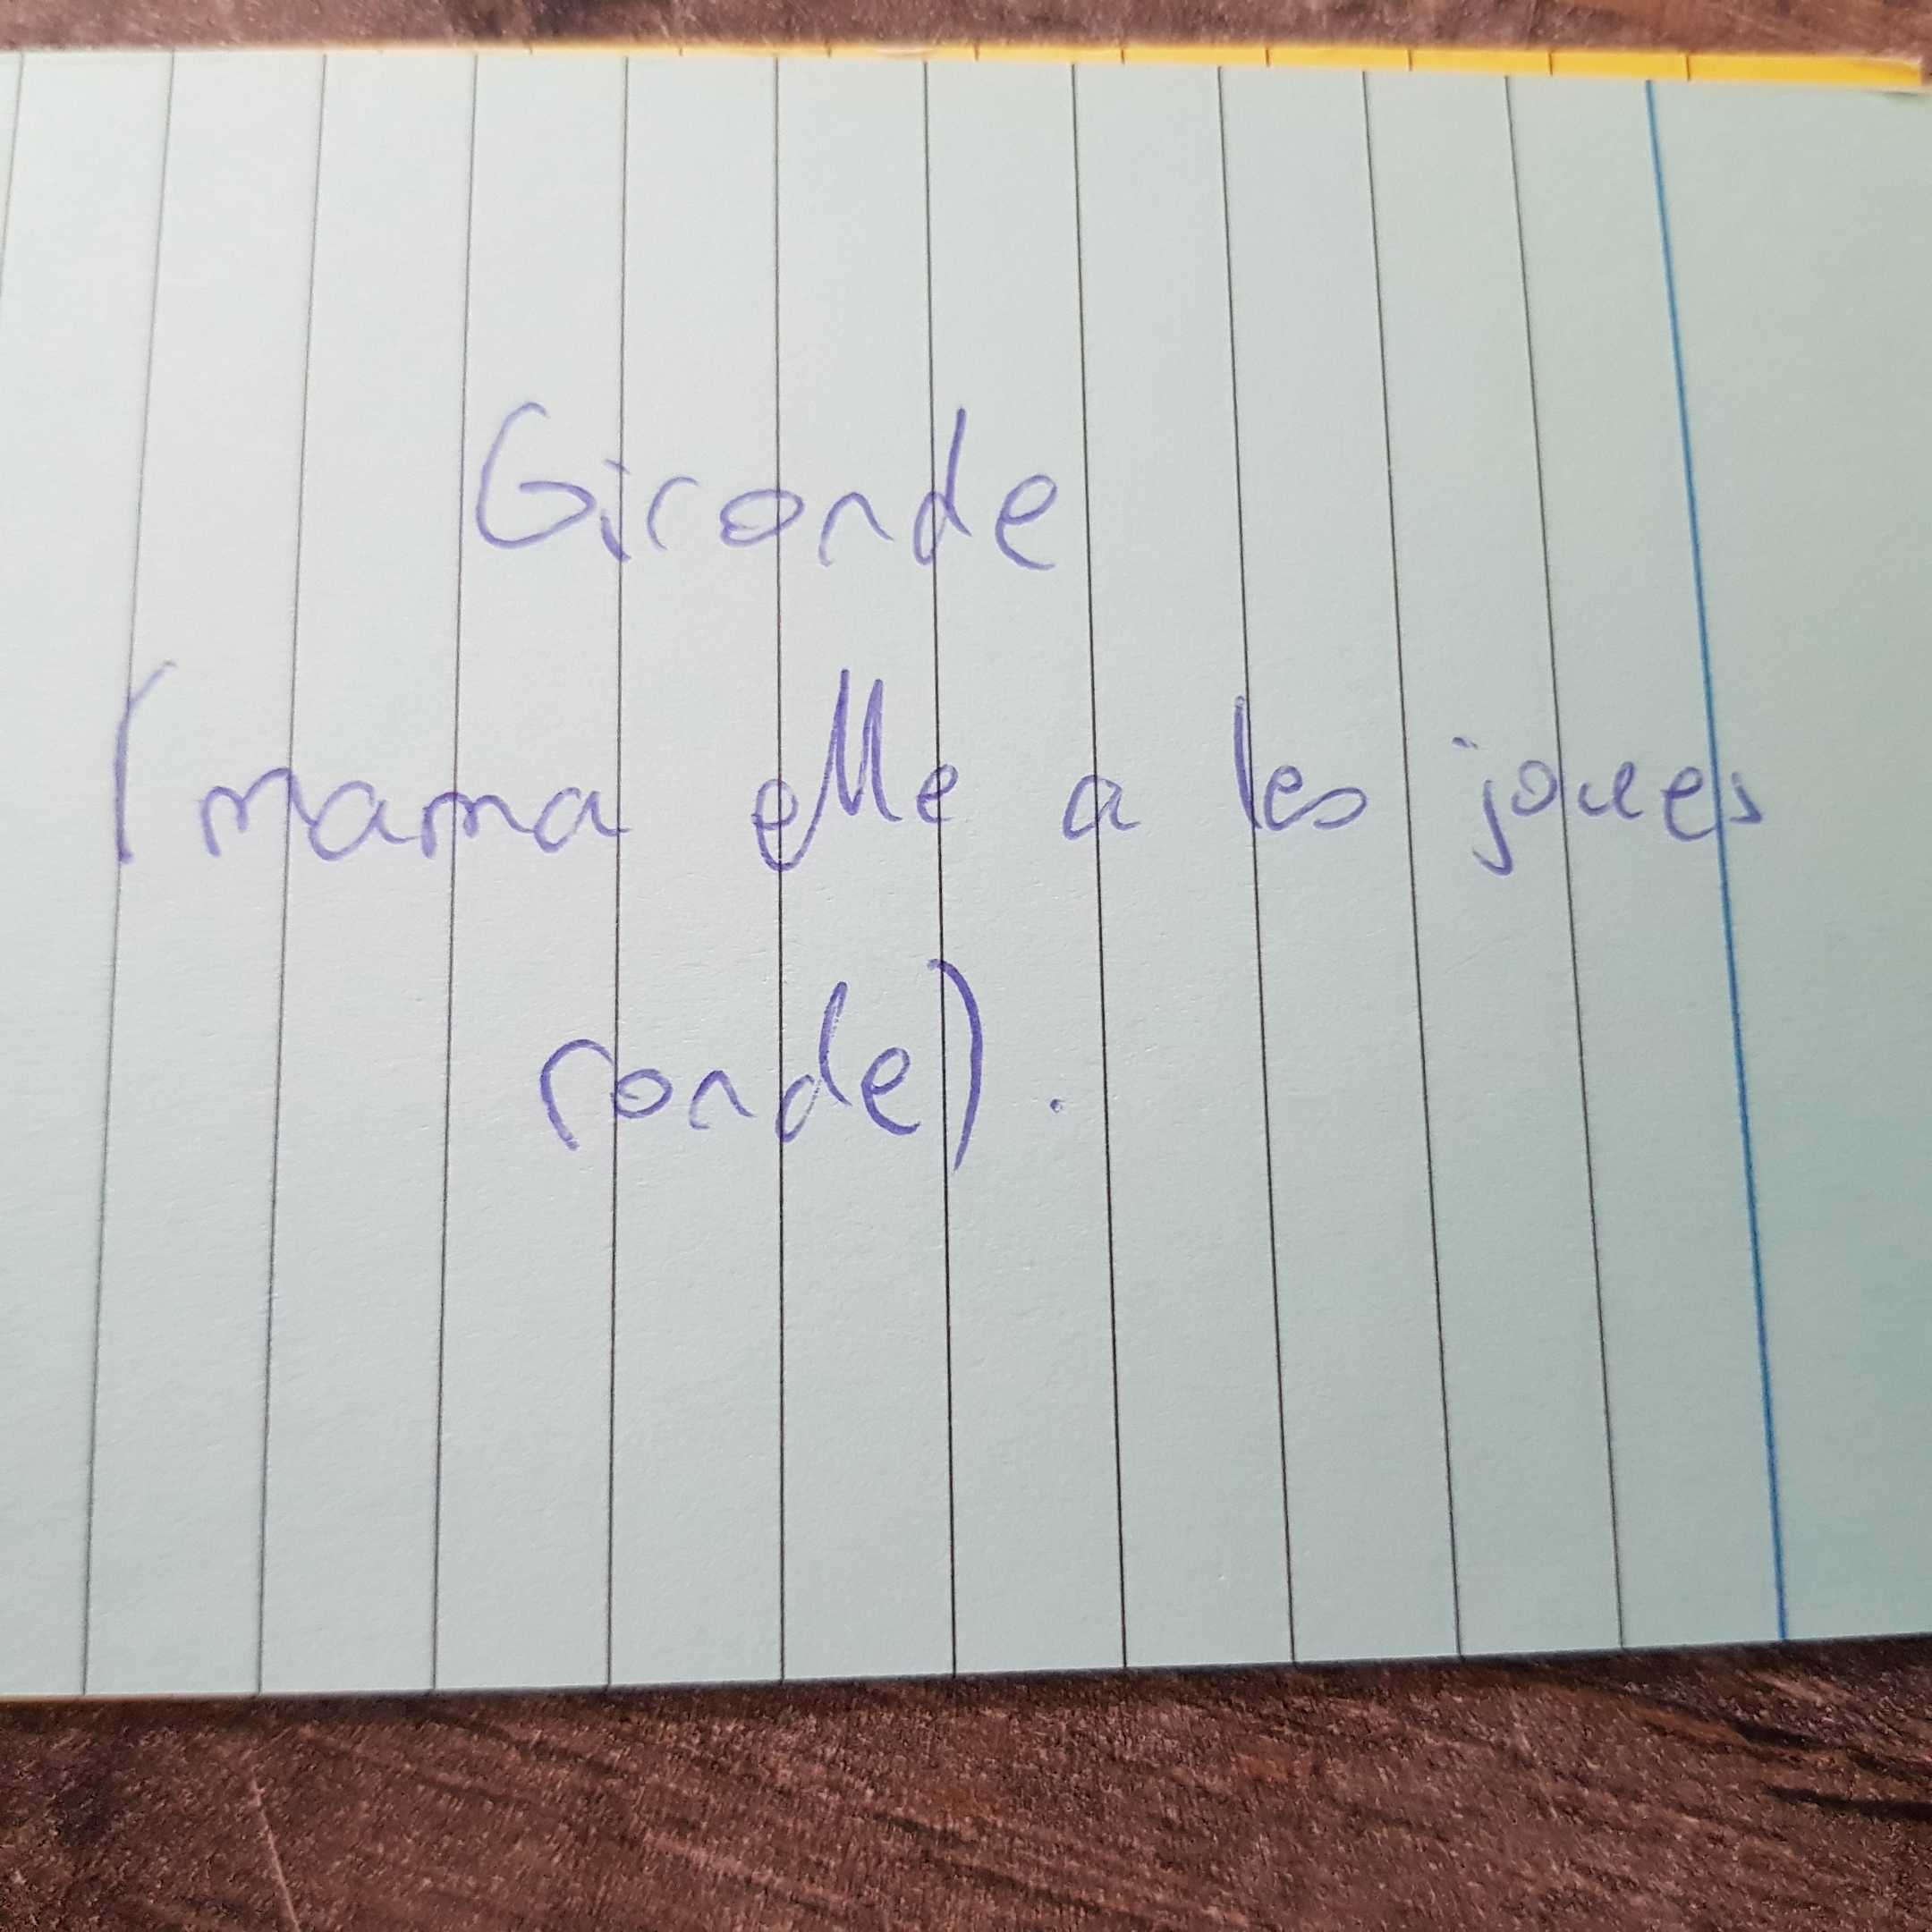 Gironde
(mama elle a les joues
ronde).